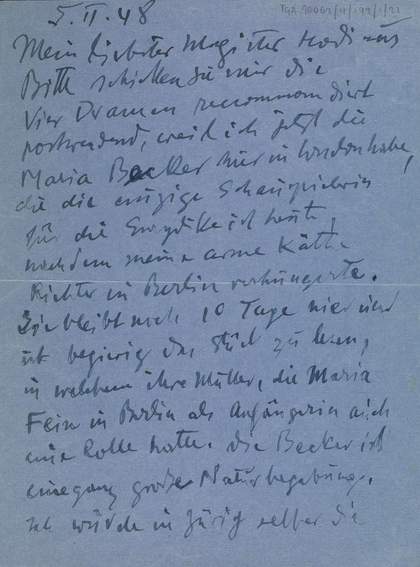 5.II.48
Mein liebster Magister
Bitte schicken Sie mir die
Vier Dramen recommandirt
postwendend, weil ich jetzt die
Maria Becker hier in London habe,
die die einzige Schauspielerin
für die Eurydike ist heute,
nachdem meine arme Käthe
Richter in Berlin verhungerte.
Sie bleibt noch 10 Tage hier und
ist begierig das Stück zu lesen,
in welchem ihre Mutter, die Maria
Fein in Berlin als Anfängerin auch
eine Rolle hatte. Die Becker ist
eine ganz große Naturbegabung.
Ich würde in Zürich selber die